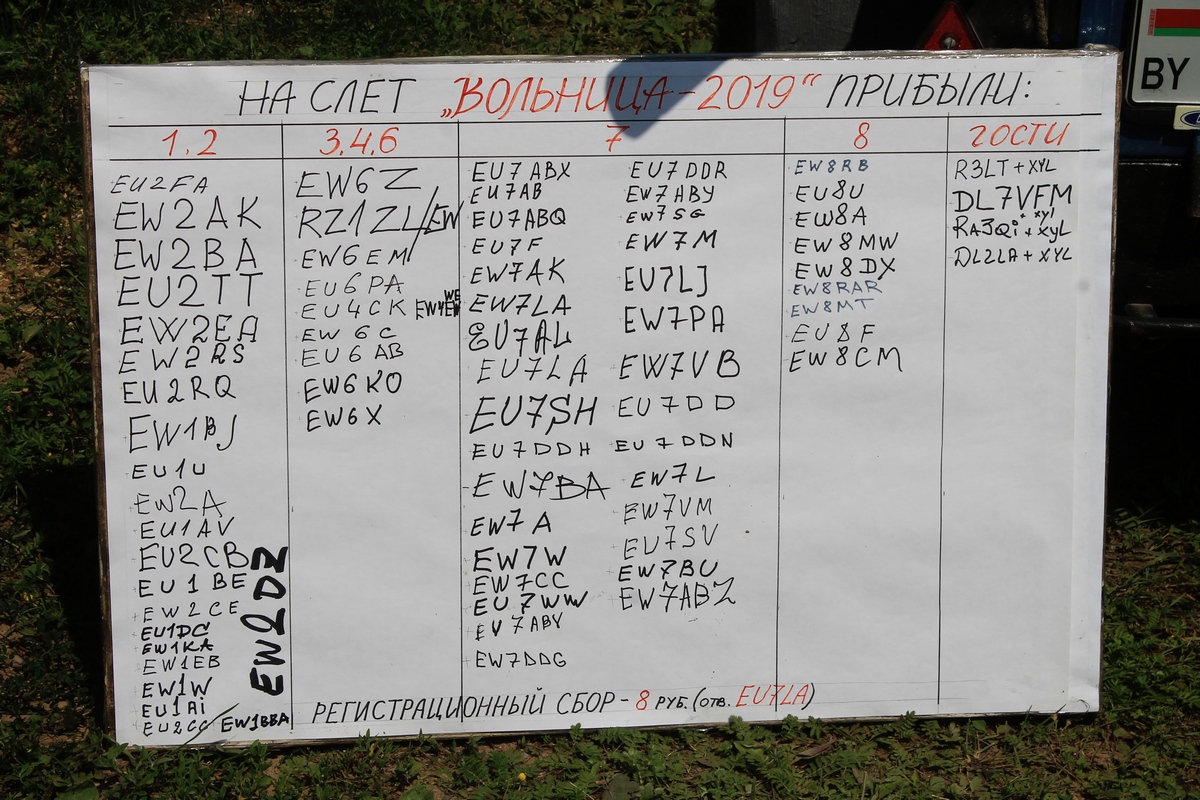 НА СЛЕТ „ВОЛЬНИЦА-2019“ ПРИБЫЛИ:
1,2
EU2FA
EW2AK
EW2BA
EU2TT
EW2EA
EW2RS
EU2RQ
EW1BJ
EU1U
EW2A
EU1AV
EU2CB
EU1BE
EW2CE
EU1DC
EW1KA
EW1EB
EW1W
EU1Ai
EU2CC EW1BBA
EW2DZ
3,4,6
EW6Z
RZ1ZL/EW
EW6EM
EU6PA
EU4CK
EW6C
EU6AB
EW6KO
EW6X
7
EU7ABX
EU7AB
EU7ABQ
EU7F
EW7AK
EW7LA
EU7AL
EU7LA
EU7SH
EU7DDH
EW7BA
EW7A
EW7W
EW7CC
EU7WW
EV7ABY
EW7DDG
EU7DDR
EW7ABY
EW7SG
EW7M
EU7LJ
EW7PA
EW7VB
EU7DD
EU7DDN
EW7L
EW7VM
EU7SV
EW7BU
EW7ABZ
8
EW8RB
EU8U
EW8A
EW8MW
EW8DX
EW8RAR
EW8MT
EU8F
EW8CM
ГОСТИ
R3LT + XYL
DL7VFM
+ xyl
RA3Qi + XYL
DL2LA + XYL
РЕГИСТРАЦИОННЫЙ СБОР - 8 РУБ. (ОТВ. EU7LA)
BY